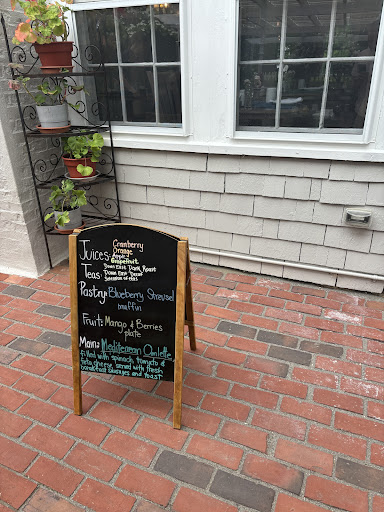 Juices: Cranberry
Orange
Apple
Grapefruit
Teas: Down East Dark Roast
Down East Decaf
Pastry: Blueberry Streusel
muffin
Fruit: Mango & Berries
plate
Main: Mediterranean Omlette
filled with spinach, tomato &
feta cheese, served with fresh
breakfast sausages and toast